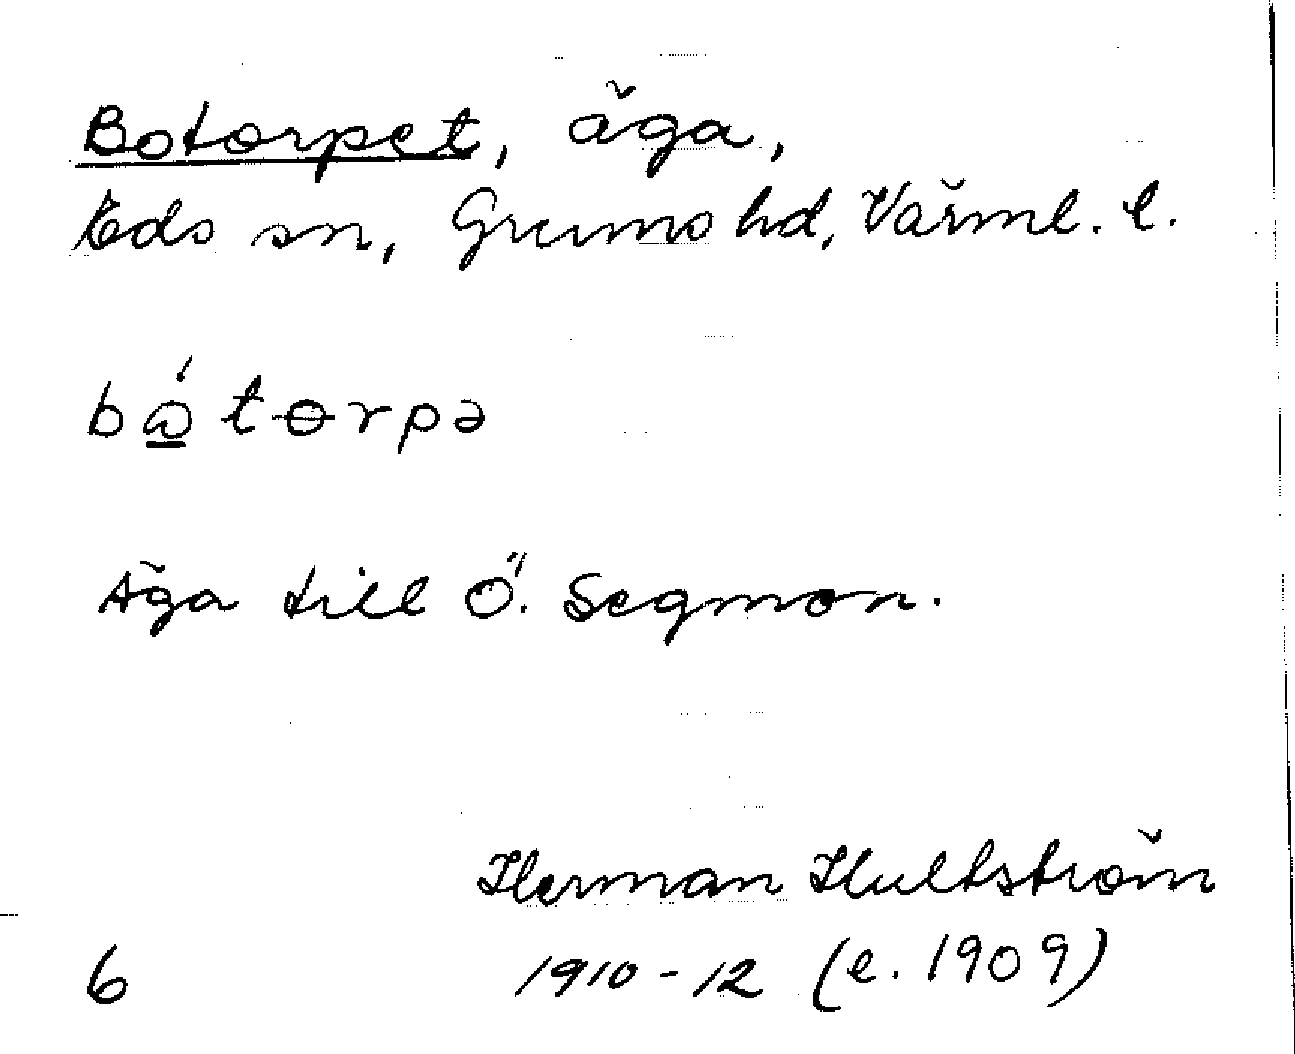 Botorpet, äga,
Eds sn, Grums hd, Värml. l.
bó̲tɵrpə
Äga till Ö. Segmon.
Herman Hultström
6 1910-12 (e. 1909)